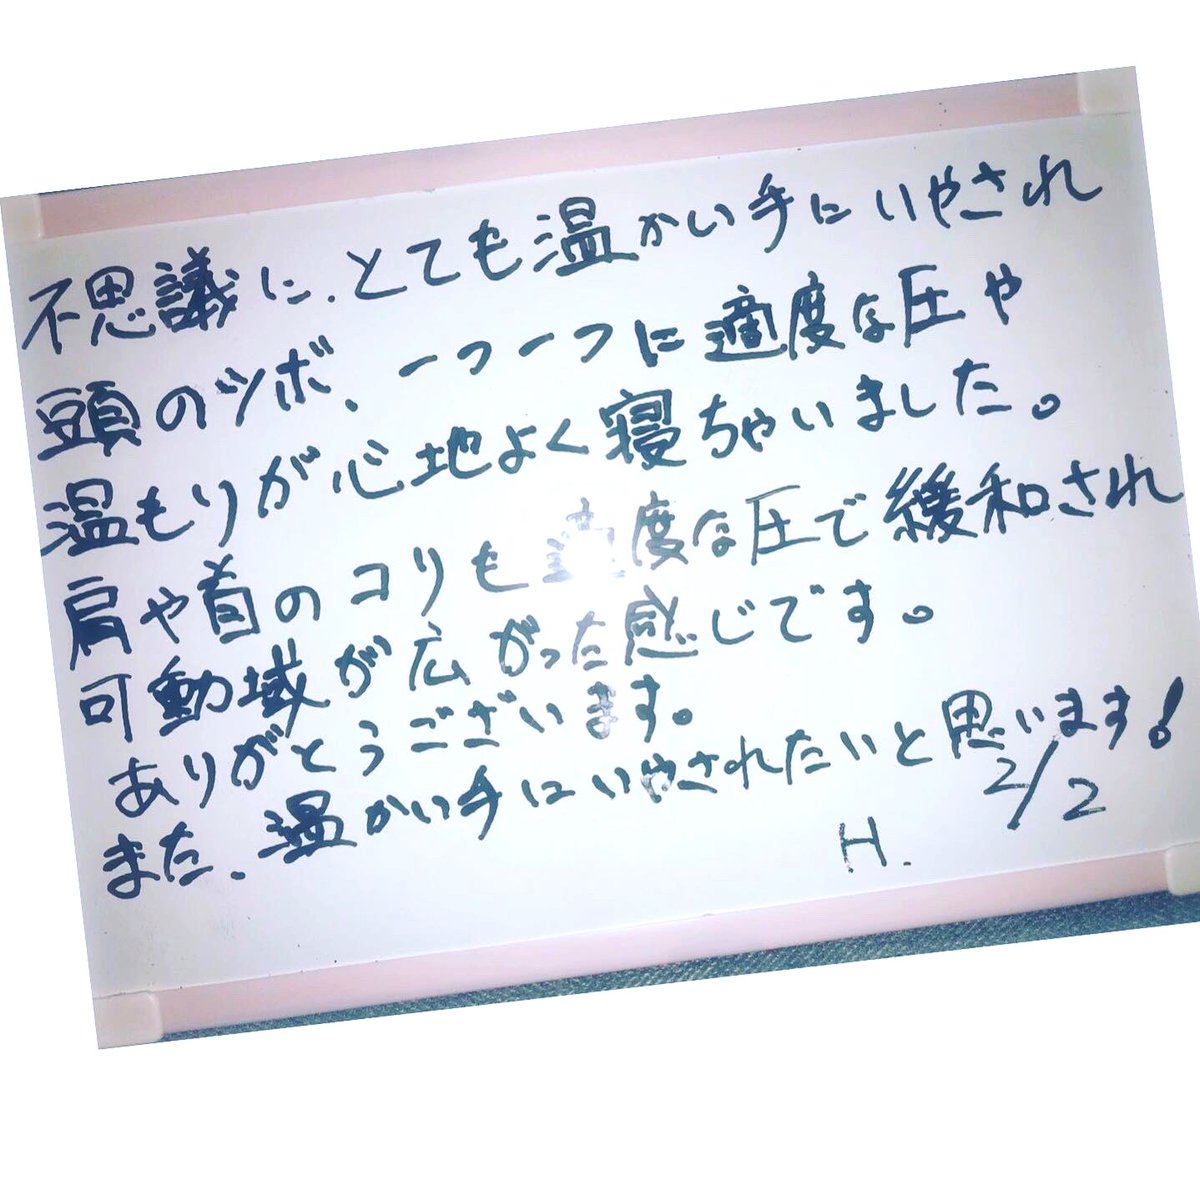 不思議に、とても温かい手にいやされ
頭のツボ、一つ一つに適度な圧や
温もりが心地よく寝ちゃいました。
肩や首のコリも適度な圧で緩和され
可動域が広がった感じです。
ありがとうございます。
また、温かい手にいやされたいと思います!
2/2
H.